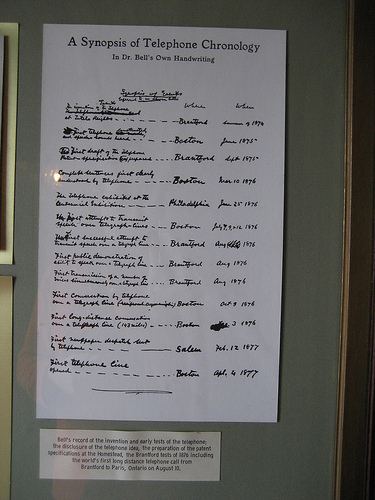 A Synopsis of Telephone Chronology
In Dr. Bell's Own Handwriting
Synopsis of Events
Where When
Brantford Summer of 1874
First telephone
and speech sounds heard Boston June 1875
First draft of the Telephone
Patent specification prepared Brantford Sept. 1875
Complete sentences first clearly
understood by telephone Boston Mar 10 1876
The Telephone exhibited at the
Centennial Exhibition Philadelphia June 25 1876
First attempts to transmit
speech over telegraph-lines Boston July 1876
First successful attempt to
transmit speech over a telegraph line Brantford Aug 1876
First public demonstration of
ability to speak over a telegraph line Brantford Aug 1876
First transmission of a number of
voices simultaneously over a telegraph line Brantford Aug 1876
First conversation by telephone
over a telegraph line Boston Oct. 9 1876
First long-distance conversation
over a telephone line (143 miles) Boston 3 1876
First newspaper despatch sent
by telephone Salem Feb. 12 1877
First telephone line
opened Boston Apl. 4 1877
Bell's record of the invention and early tests of the telephone;
the disclosure of the telephone idea, the preparation of the patent
specifications at the Homestead, the Brantford tests of 1876 including
the world's first long distance telephone call from
Brantford to Paris, Ontario on August 10.